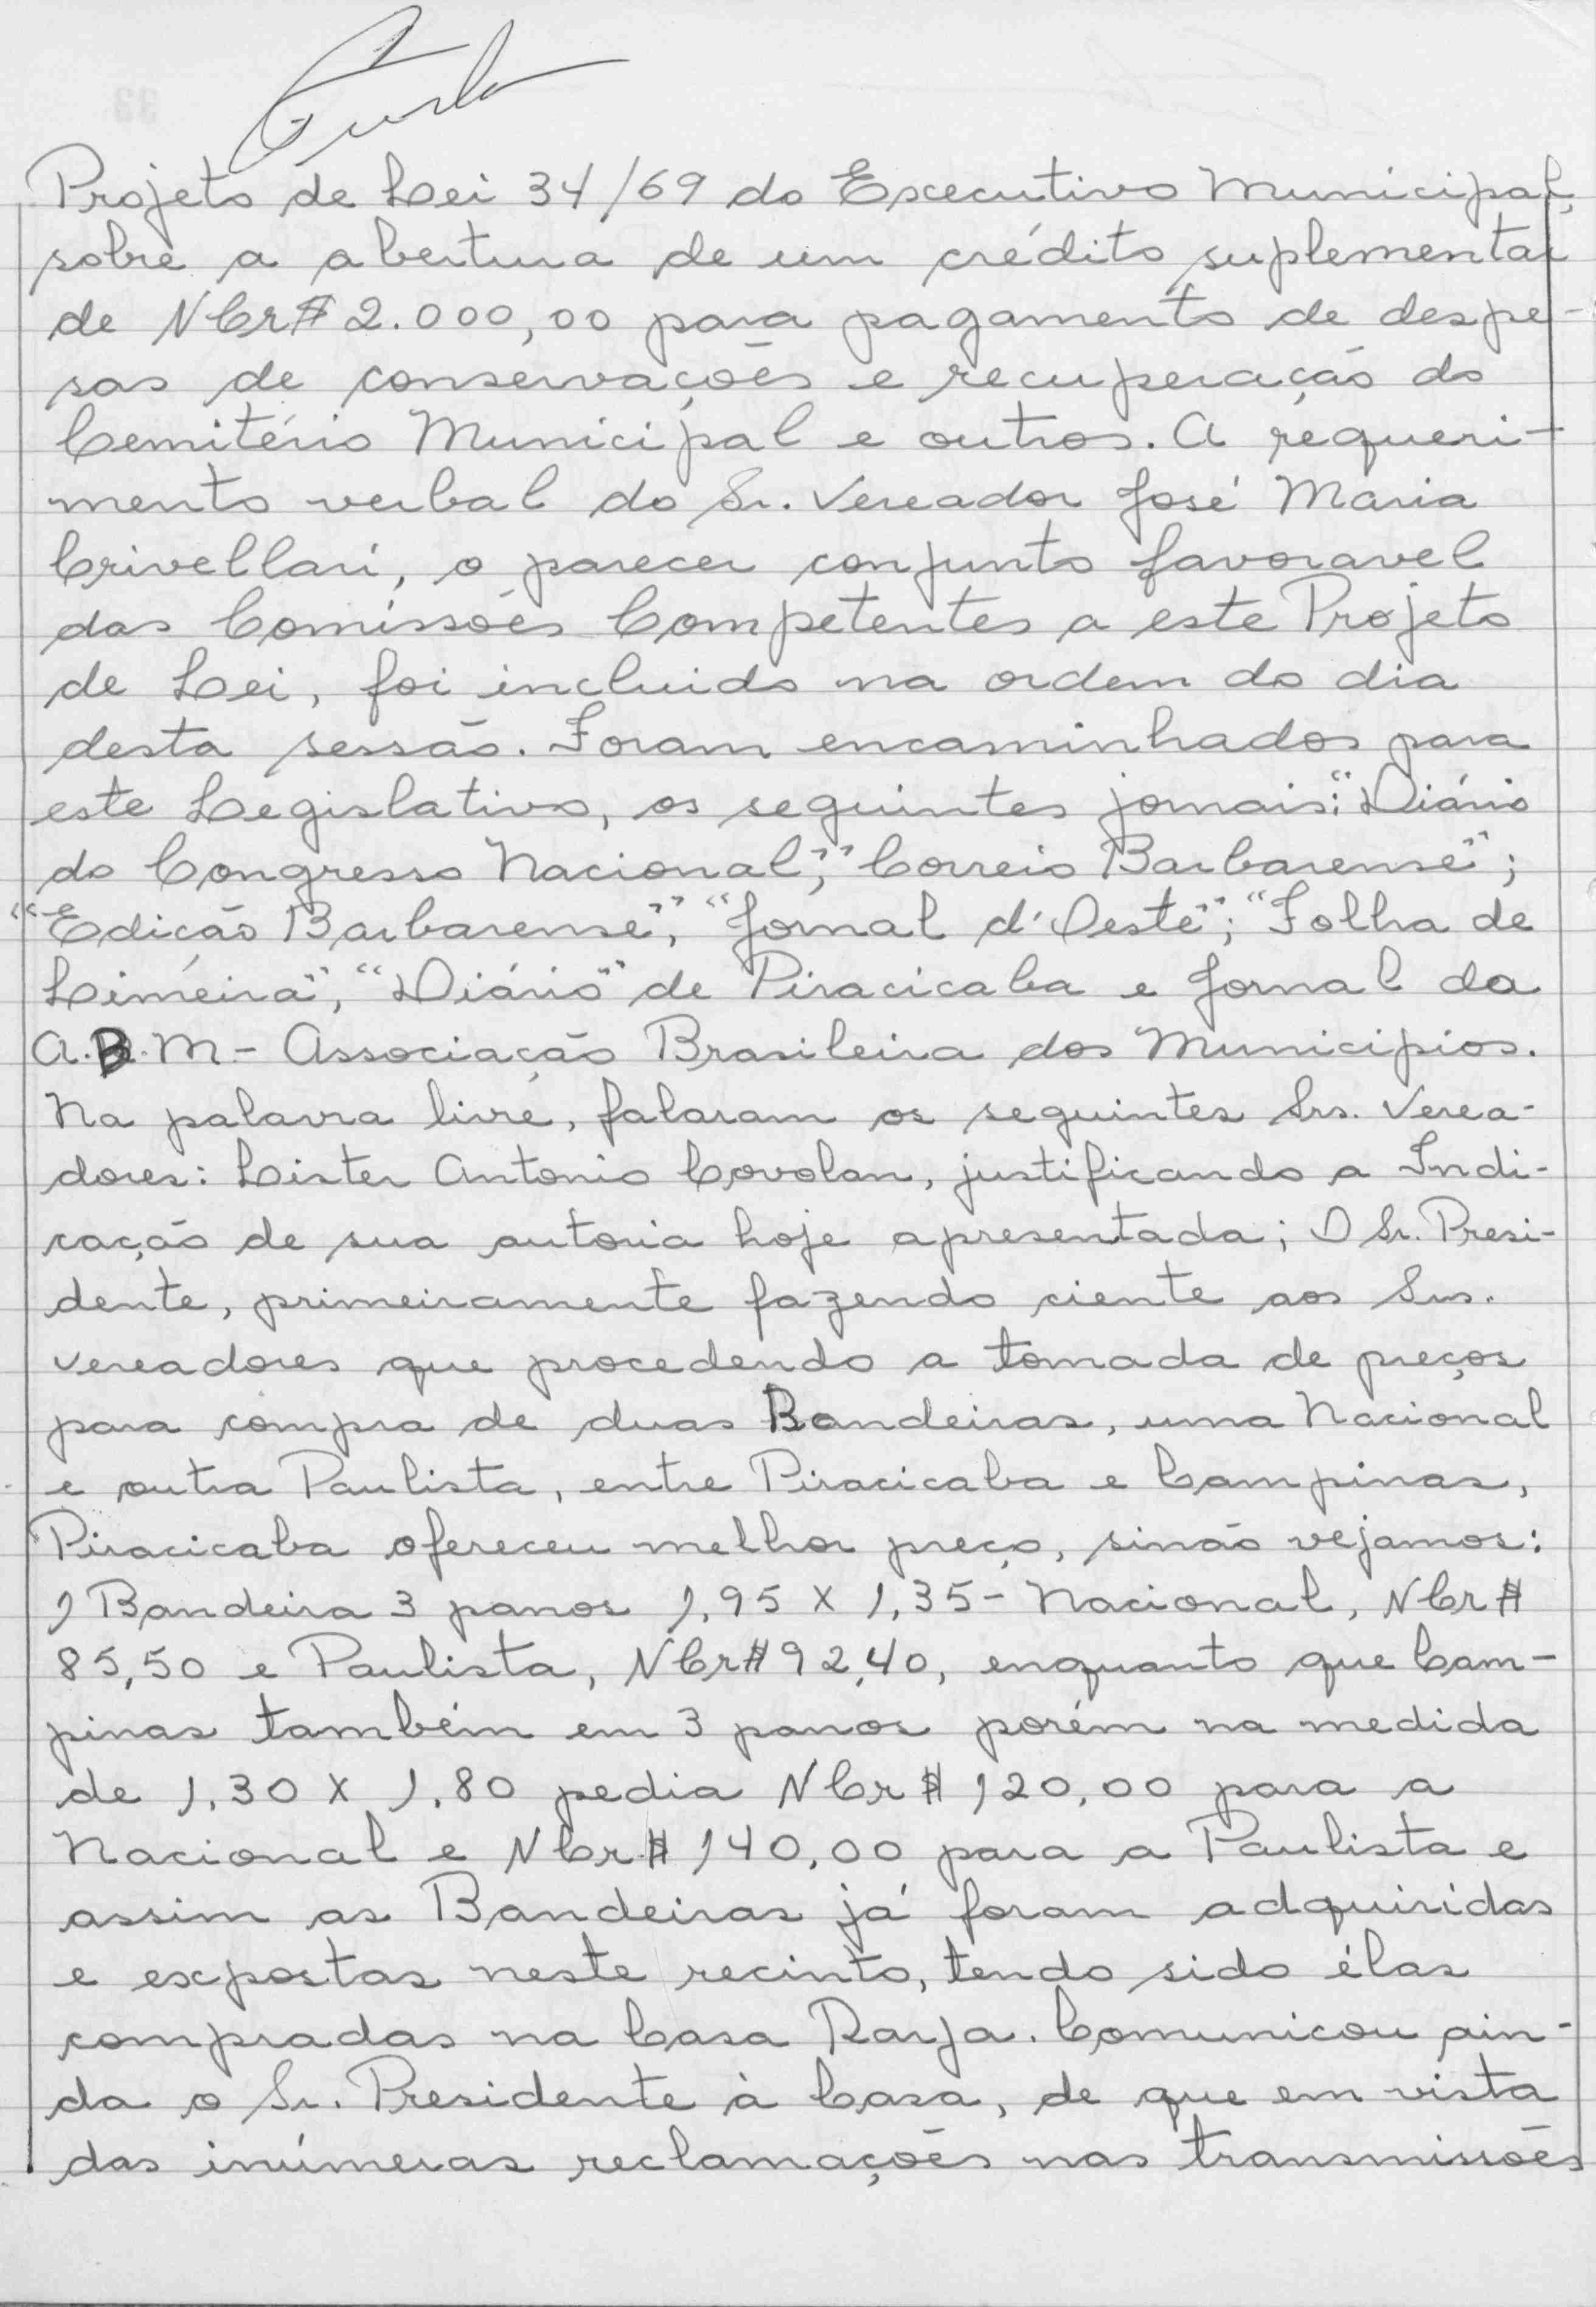 Projeto de Lei 34/69 do Executivo Municipal,
sobre a abertura de um crédito suplementar
de NCr$ 2.000,00 para pagamento de despe-
sas de conservações e recuperação do
Cemitério Municipal e outros. A requeri-
mento verbal do Sr. Vereador José Maria
Crivellari, o parecer conjunto favoravel
das Comissões Competentes a este Projeto
de Lei, foi incluido na ordem do dia
desta sessão. Foram encaminhados para
este Legislativo, os seguintes jornais: "Diário
do Congresso Nacional"; "Correio Barbarense";
"Edição Barbarense"; "Jornal d'Oeste"; "Folha de
Limeira", "Diário" de Piracicaba e Jornal da
A.B.M - Associação Brasileira dos Municipios.
Na palavra livre, falaram os seguintes Srs. Verea-
dores: Lister Antonio Covolan, justificando a Indi-
cação de sua autoria hoje apresentada; O Sr. Presi-
dente, primeiramente fazendo ciente aos Srs.
vereadores que procedendo a tomada de preços
para compra de duas Bandeiras, uma Nacional
e outra Paulista, entre Piracicaba e Campinas,
Piracicaba ofereceu melhor preço, sinão vejamos:
1 Bandeira 3 panos 1,95 X 1,35 - Nacional, NCr$
85,50 e Paulista, NCr$ 92,40, enquanto que Cam-
pinas também em 3 panos porém na medida
de 1,30 X 1,80 pedia NCr$ 120,00 para a
Nacional e NCr$ 140,00 para a Paulista e
assim as Bandeiras já foram adquiridas
e expostas neste recinto, tendo sido élas
compradas na Casa Raya. Comunicou ain-
da o Sr. Presidente à Casa, de que em vista
das inúmeras reclamações nas transmissões